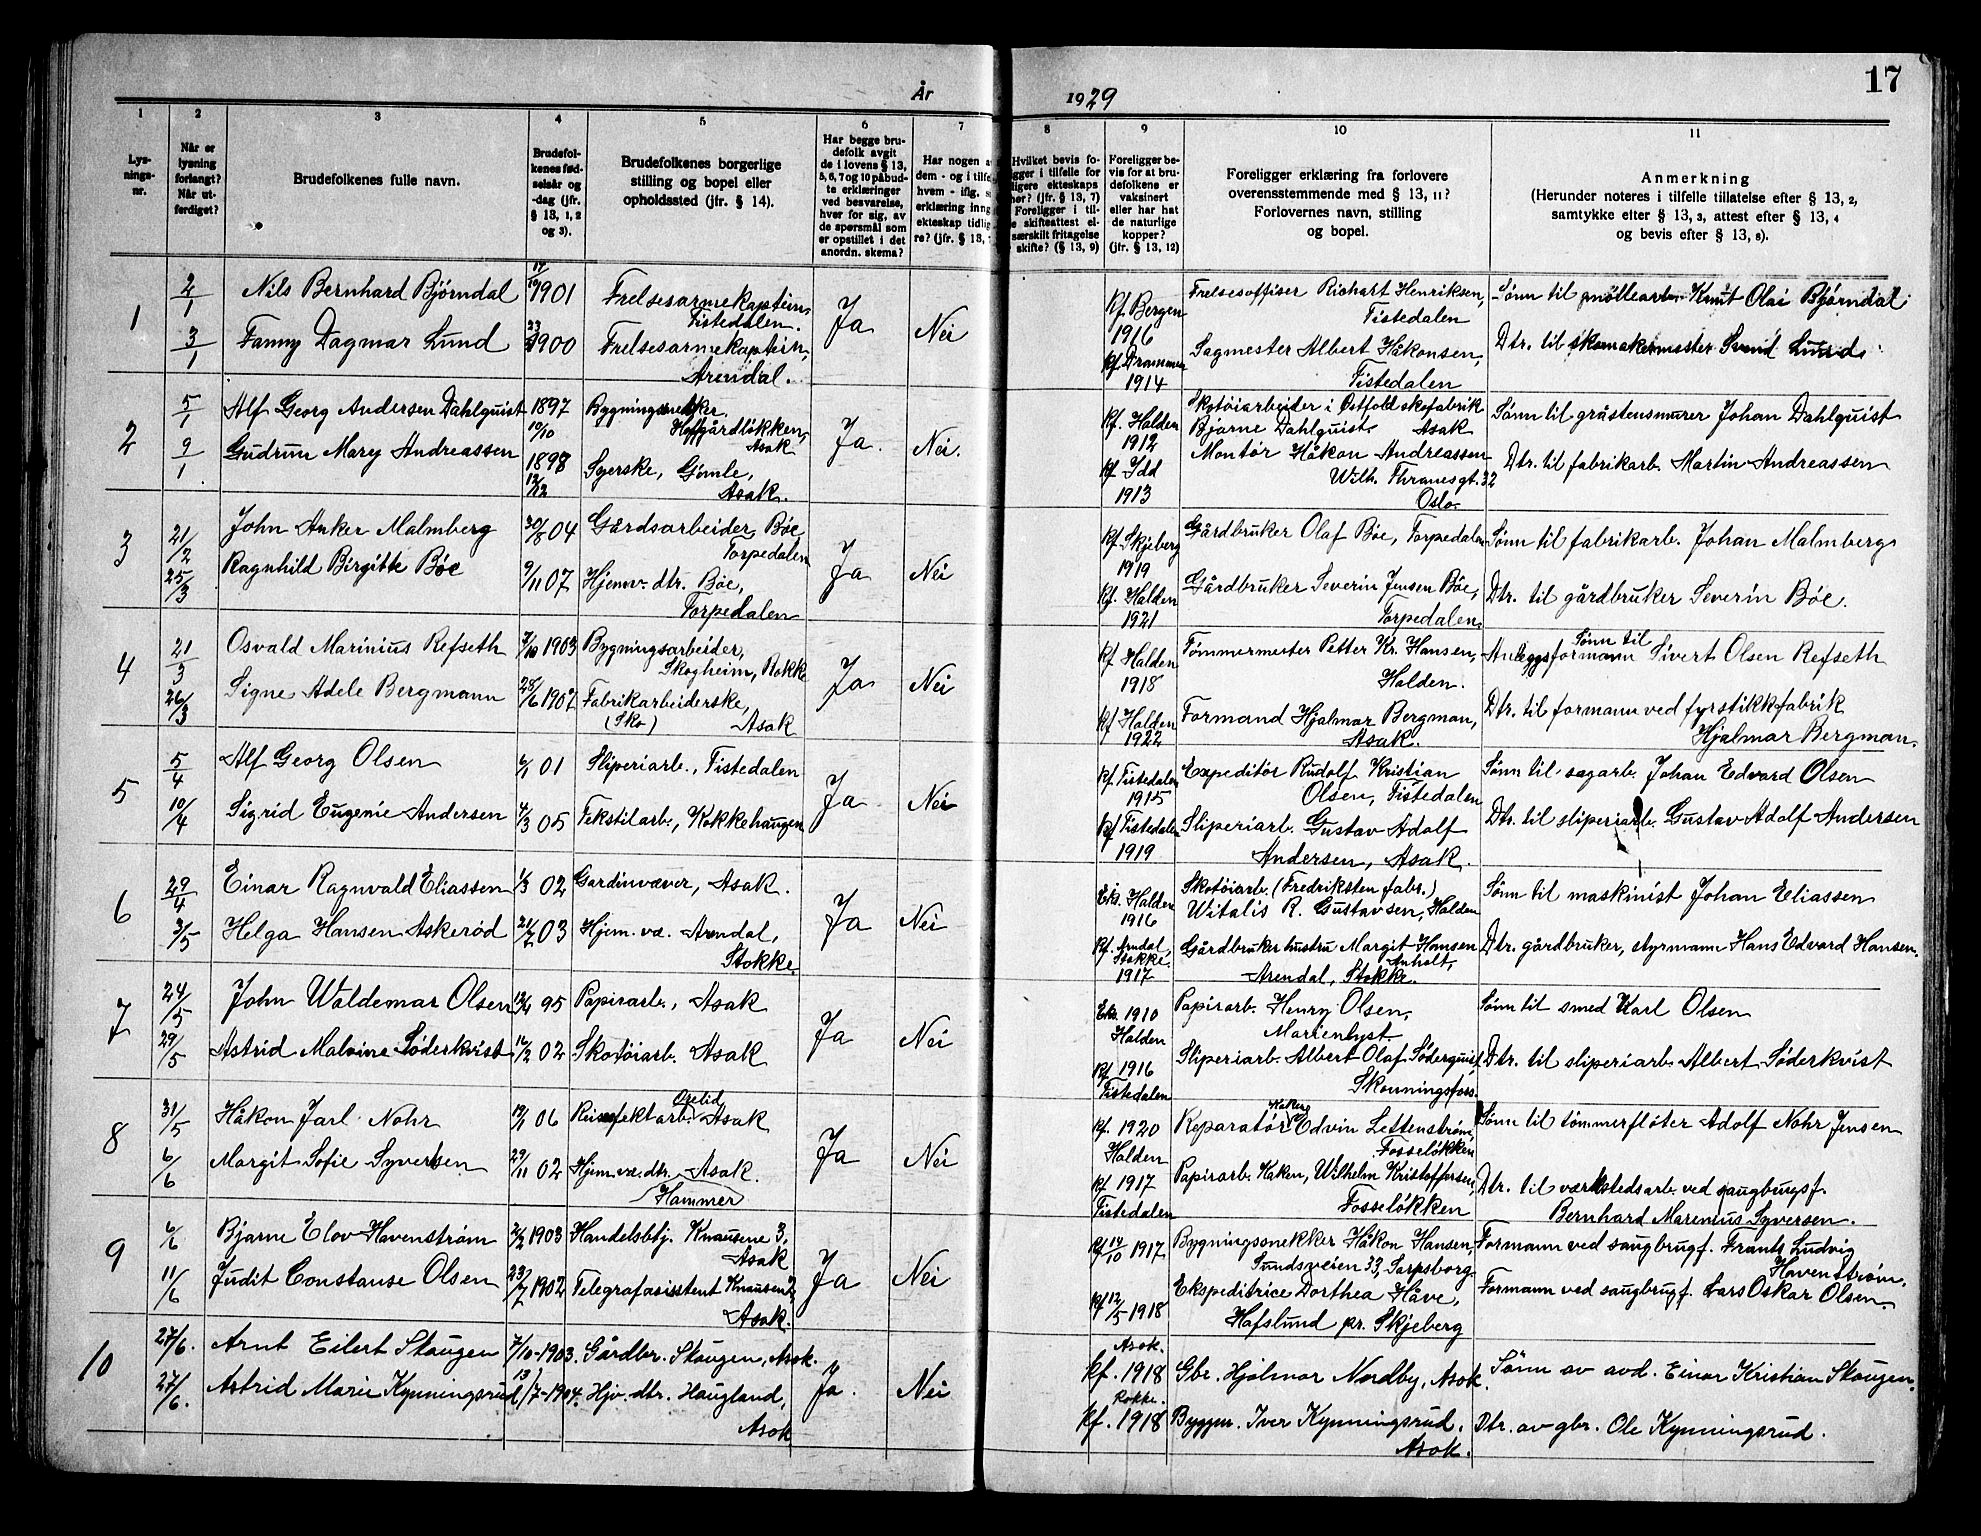 17
År 1929
1 2 3 4 5 6 7 8 9 10 11
Lys-
nings-
nr.
Når er
lysning
forlangt?
Når ut-
ferdiget?
Brudefolkenes fulle navn.
Brudefol-
kenes fød-
selsår og
-dag (jfr.
§ 13, 1, 2
og 3).
Brudefolkenes borgerlige
stilling og bopel eller
opholdssted (jfr. § 14).
Har begge bru-
defolk avgit
de i lovens § 13,
5, 6, 7 og 10 påbud-
te erklæringer
ved besvarelse,
hver for sig, av
de spørsmål som
er opstillet i det
anordn. skema?
Har nogen a
dem - og i tilfe
hvem - iflg. s
erklæring inng
ekteskap tidlig
re? (jfr. § 13,
Hvilket bevis fo-
gger i tilfelle for
ligere ekteskaps
her? (jfr. § 13, 7)
Foreligger i til-
e skifteattest el-
særskilt fritagelse
skifte? (§ 13, 9)
Foreligger be-
vis for at bru-
defolkene er
vaksinert
eller har hat
de naturlige
kopper?
(jfr. § 13, 12)
Foreligger erklæring fra forlovere
overensstemmende med § 13, 11?
Forlovernes navn, stilling
og bopel.
Anmerkning
(Herunder noteres i tilfelle tillatelse efter § 13, 2,
samtykke efter § 13, 3, attest efter § 13, 4
og bevis efter § 13, 8).
1
2/1
3/1
Nils Bernhard Bjørndal
1901
Frelsesarmekaptein,
Tistedalen.
Fanny Dagmar Lund
1900
Frelsesarmekaptein,
Arendal.
Ja
Nei
Kf. Bergen
1916
Kf. Drammen
1914
Frelsesoffiser Richart Henriksen,
Tistedalen
Sagmester Albert Håkonsen,
Tistedalen
Sønn til Knut Olai Bjørndal
Dtr. til skomakermester Svend Lund
2
5/1
9/1
Alf Georg Andersen Dahlquist
1897
19/10
Bygningssnekker.
Hoffgårdløkken,
Asak
Gudrun Mary Andreassen
1898
12/12
Syerske, Gimle,
Asak.
Ja.
Nei.
Kf. Halden
1912
Kf Idd
1913
Skotøiarbeider i Østfold skofabrik
Bjarne Dahlquist. Asak
Montør Håkon Andreassen
Wilh. Thranesgt. 32
Oslo.
Sønn til gråstensmurer Johan Dahlquist
Dtr. til fabrikarb. Martin Andreassen
3
21/2
25/3
John Anker Malmberg
30/8 04
Gårdsarbeider, Bøe
Torpedalen
Ragnhild Birgitte Bøe
9/11 07
Hjemv. dtr. Bøe,
Torpedalen
Ja
Nei
Kf. Skjeberg
1919
Kf. Halden
1921
Gårdbruker Olaf Bøe, Torpedalen
Gårdbruker Severin Jensen Bøe,
Torpedalen.
Sønn til fabrikarb. Johan Malmberg
Dtr. til gårdbruker Severin Bøe.
4
21/3
26/3
Osvald Marinius Refseth
7/10 1903
Bygningsarbeider,
Skogheim, Rokke
Signe Adele Bergmann
28/6 1907
Fabrikarbeiderske,
(Sko) Asak
Ja
Nei
Kf Halden
1918
Kf Halden
1922
Tømmermester Petter Kr. Hansen,
Halden.
Formand Hjalmar Bergman,
Asak.
Sønn til
Anleggsformann Sivert Olsen Refseth
Dtr. til formann ved fyrstikkfabrik
Hjalmar Bergman.
5
5/4
10/4
Alf Georg Olsen
6/1 01
Sliperiarb., Tistedalen
Sigrid Eugenie Andersen
4/3 05
Tekstilarb., Kokkehaugen
Ja
Nei
Kf. Tistedalen
1915
Kf Tistedalen
1919
Expeditør Rudolf Kristian
Olsen, Tistedalen
Sliperiarb. Gustav Adolf
Andersen, Asak.
Sønn til sagarb. Johan Edvard Olsen
Dtr. til sliperiarb. Gustav Adolf Andersen
6
29/4
3/5
Einar Ragnvald Eliassen
1/3 02
Gardinvæver, Asak.
Helga Hansen Askerød
21/7 03
Hjem. væ. Arendal,
Stokke.
Ja
Nei
Eks. Halden
1916
Kf. Arndal
Stokke
1917
Skotøiarb. (Fredriksten fabr.)
Witalis R. Gustavsen, Halden
Gårdbruker hustru Margit Hansen
Anholt,
Arendal, Stokke.
Sønn til maskinist Johan Eliassen
Dtr. gårdbruker, styrmann Hans Edvard Hansen.
7
24/5
29/5
John Waldemar Olsen
12/4 95
Papirarb., Asak
Astrid Malvine Søderkvist
16/2 02
Skotøiarb. Asak
Ja
Nei
Eks. 1910
Halden
Kf. 1916
Tistedalen
Papirarb. Henry Olsen,
Marienlyst.
Sliperiarb. Albert Olaf Søderquist,
Skonningsfoss.
Sønn til smed Karl Olsen
Dtr. til sliperiarb. Albert Søderkvist
8
31/5
6/6
Håkon Jarl Nohr
19/1 06
Reiseefektarb. Asak
Margit Sofie Syvertsen
29/11 02
Hjem. væ. dtr. Asak.
Hammer
Ja
Nei
Kf. 1920
Halden
Kf. 1917
Tistedalen
Reparatør Edvin Lettenstrøm,
Fosseløkken
Papirarb. Haken, Wilhelm Kristoffersen,
Fosseløkken
Sønn til tømmerfløter Adolf Nohr Jensen
Dtr. til værkstedsarb. ved saugbrugsf.
Bernhard Marenius Syversen.
9
6/6
11/6
Bjarne Elov Havenstrøm
2/2 1903
Handelsbtj. Knausene 3,
Asak
Judit Constanse Olsen
23/7 1902
Telegrafasisstent Knausen 2,
Asak.
Ja
Nei
Kf 14/10 1917
Kf 12/5 1918
Bygningssnekker Håkon Hansen,
Sundsveien 33, Sarpsborg
Ekspeditrice Dorthea Håve,
Hafslund pr. Skjeberg
Formann ved saugbrugf. Frants Ludvig
Havenstrøm.
Formann ved saugbrugf. Lars Oskar Olsen.
10
27/6.
27/6.
Arnt Eilert Skaugen
7/10-1903.
Gårdbr. Skaugen, Asak.
Astrid Marie Kynningsrud
13/7-1904.
Hjv. dtr. Haugland,
Asak
Ja.
Nei
Asak.
Kf. 1918
Rokke.
Kf. 1918
Gbr. Hjalmar Nordby, Asak.
Byggm. Iver Kynningsrud.
Asak.
Sønn av avd. Einar Kristian Skaugen.
Dtr. av gbr. Ole Kynningsrud.